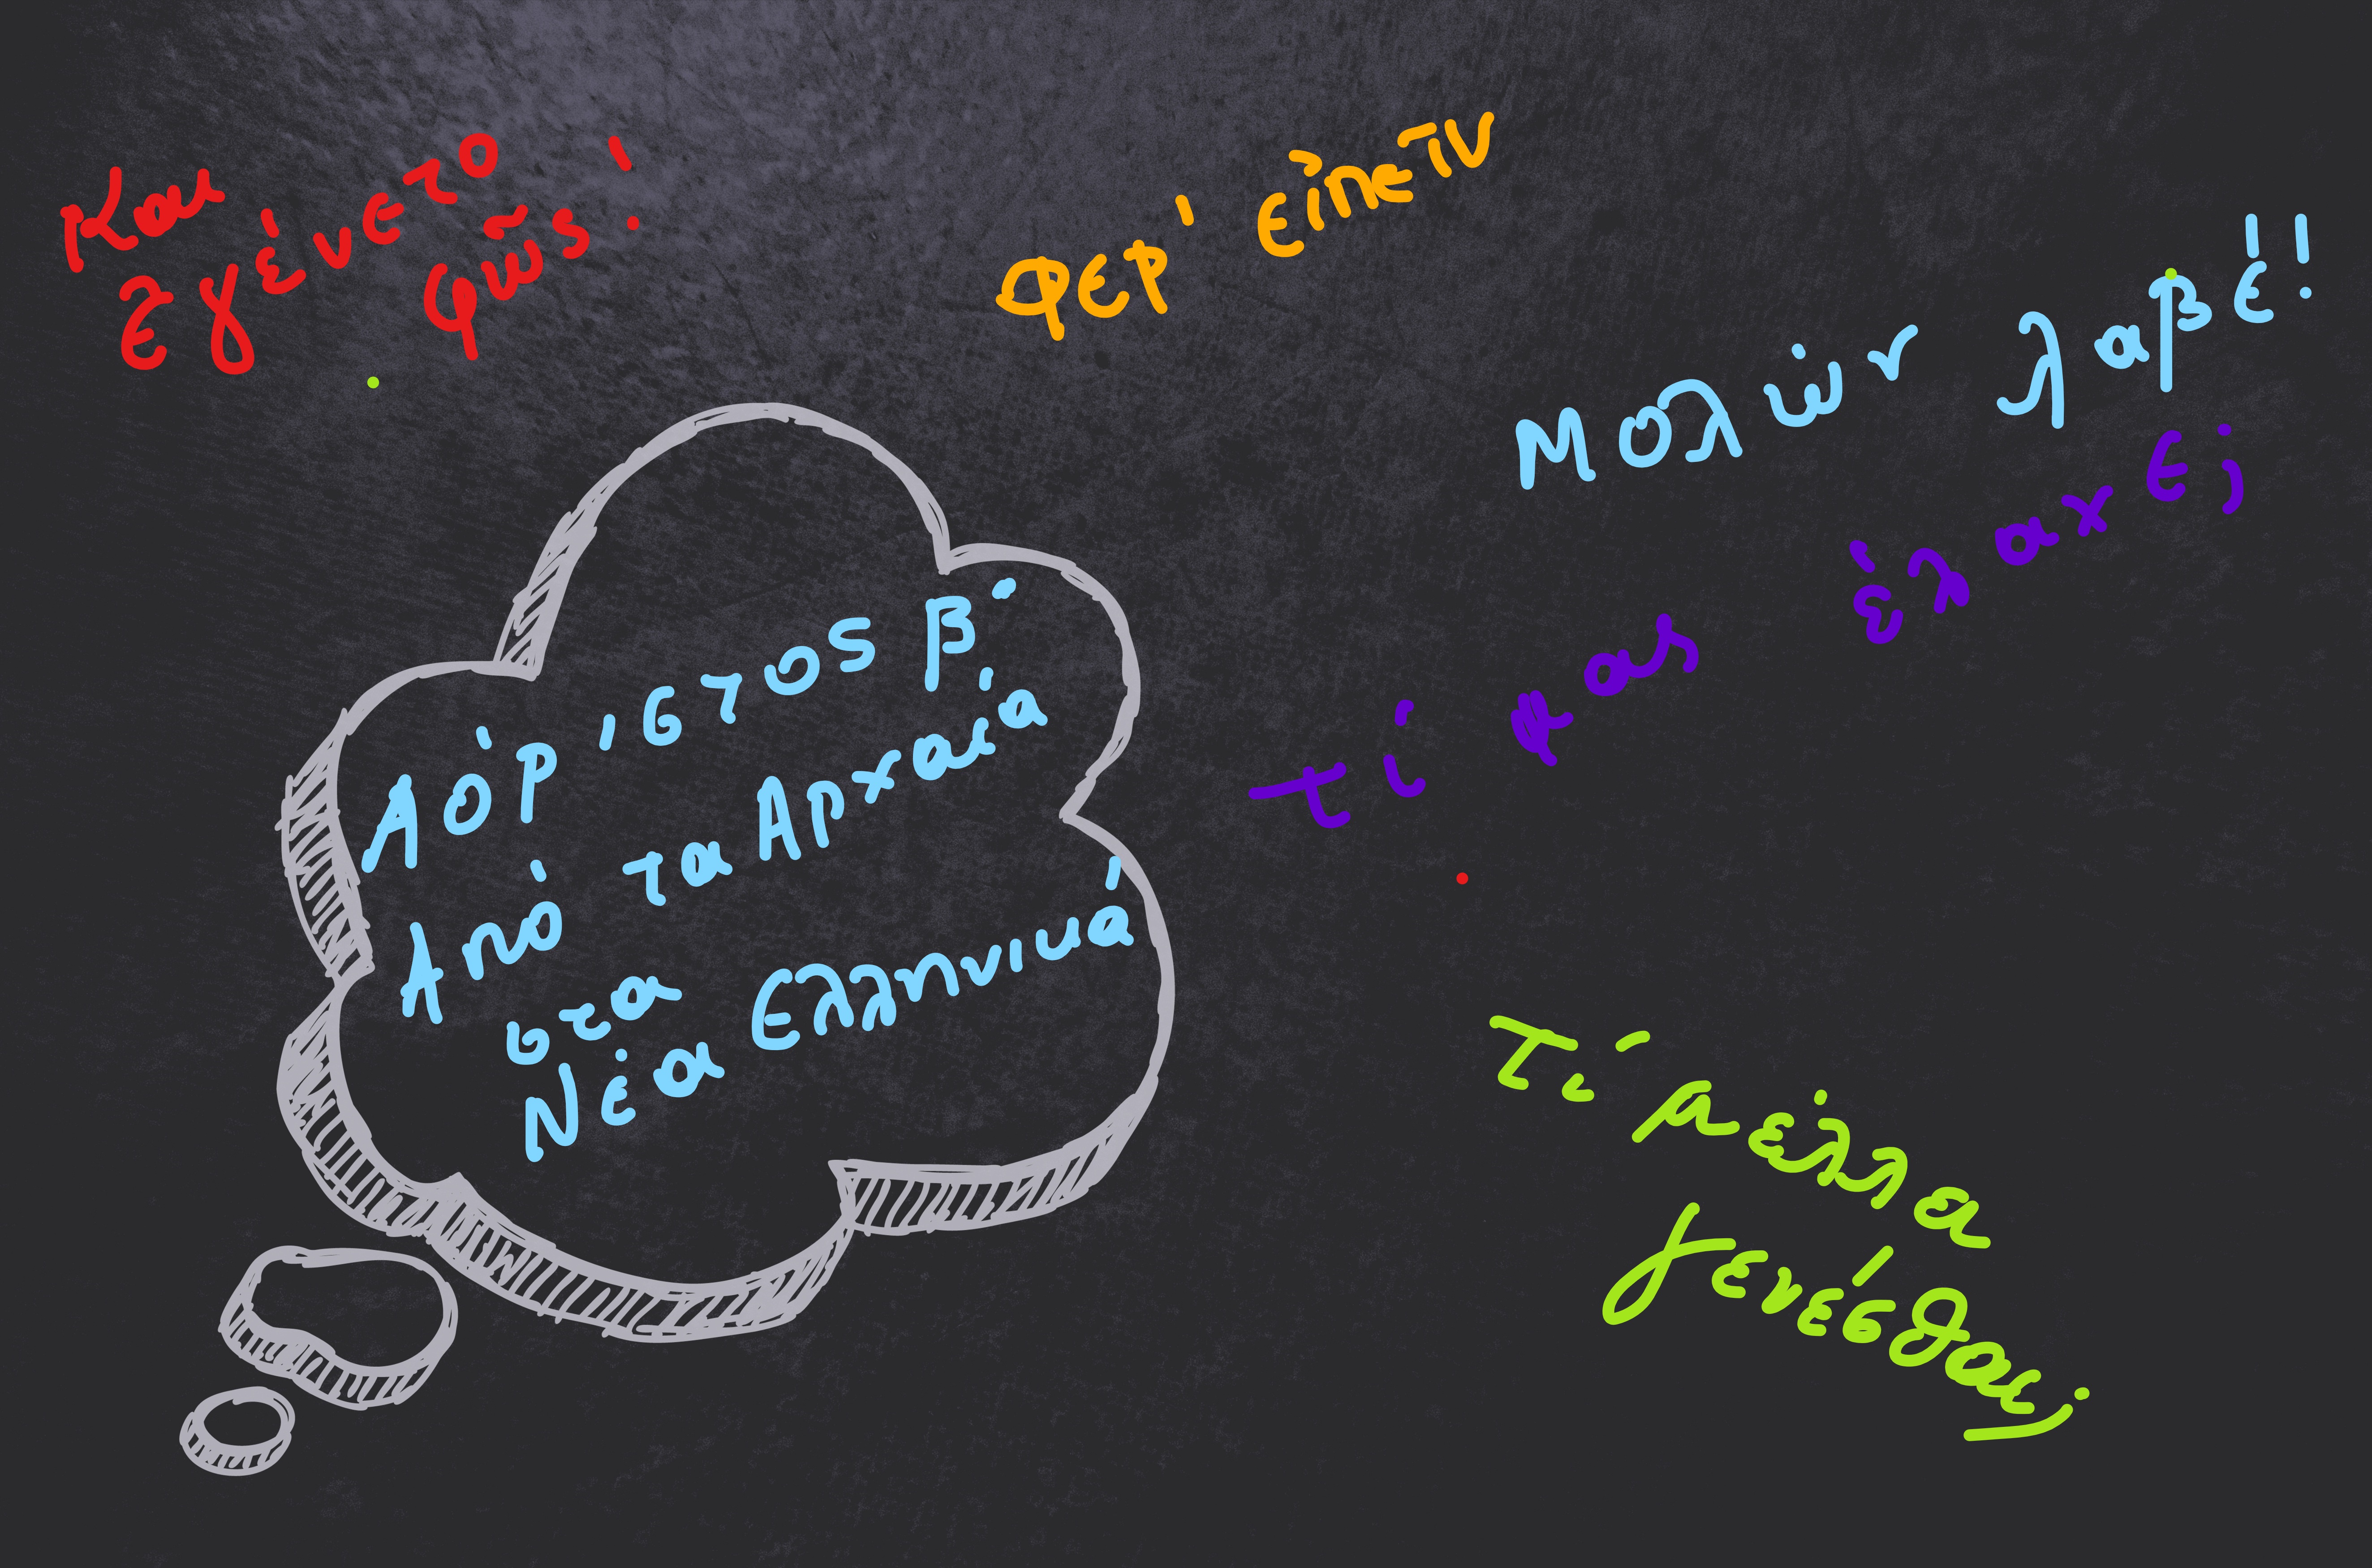 Και
εγένετο
φῶς!
φερ' εἰπεῖν
Μολών λαβέ!
τί μας έλαχε;
Αόρ'στος β'
Από τα Αρχαία
στα
Νέα Ελληνικά
Τί μέλλει
γενέσθαι;